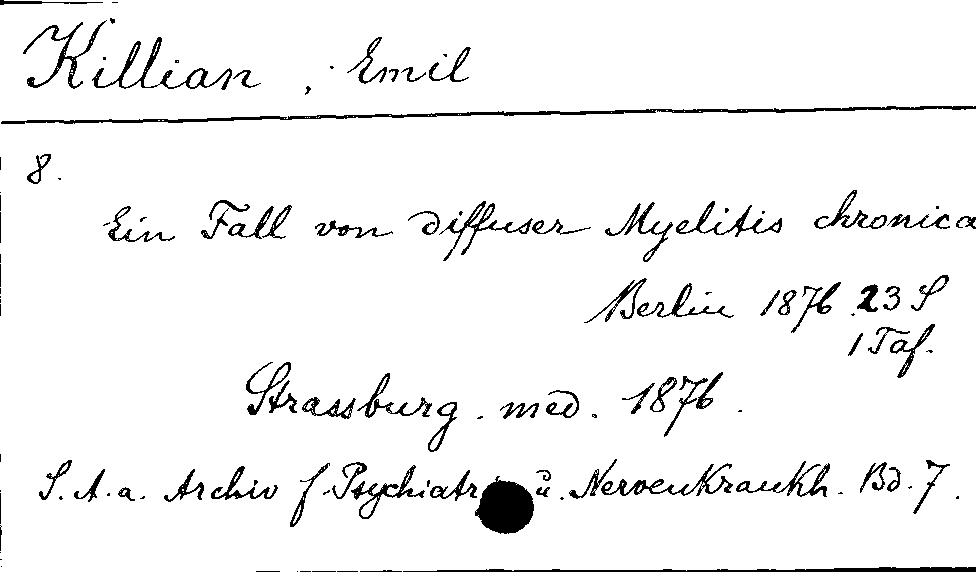 Killian, Emil
8.
Ein Fall von diffuser Myelitis chronica
Berlin 1876 23 S
1 Taf.
Strassburg. med. 1876.
S. A. a. Archiv f. Psychiatrie u. Nervenkrankh. Bd. 7.